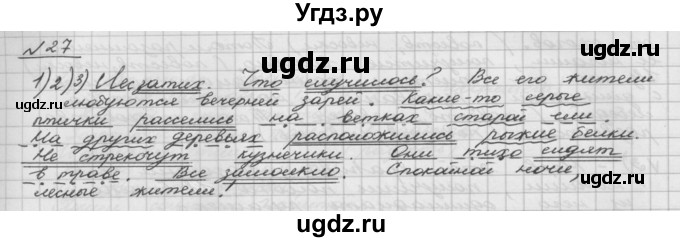 Угдз.ру
№27
1)2)3) Лес затих. Что случилось? Все его жители
любуются вечерней зарей. Какие-то серые
птички расселись на ветках старой ели.
На других деревьях расположились рыжие белки.
Не стрекочут кузнечики. Они тихо сидят
в траве. Все замолкло. Спокойной ночи,
лесные жители!
ugdz.ru ugdz.ru
ugdz.ru
ugdz.ru ugdz.ru
ugdz.ru